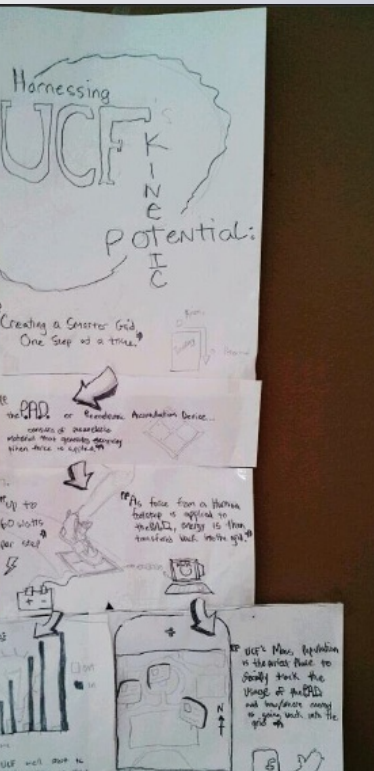 Harnessing
UCF's
KINETIC
POTENTIAL:
Creating a Smarter Grid,
One Step at a time.
the PAD or Accumulation Device...
consists of
material that generates
given force is applied
"Up to
60 watts
per step
"As force from a Human
footstep is applied to
the PAD, energy is then
transfered back into the grid."
N
UCF's Mass Population
is the perfect Place to
Socially track the
usage of the PAD
and how much energy
is going back into the
grid
UCF